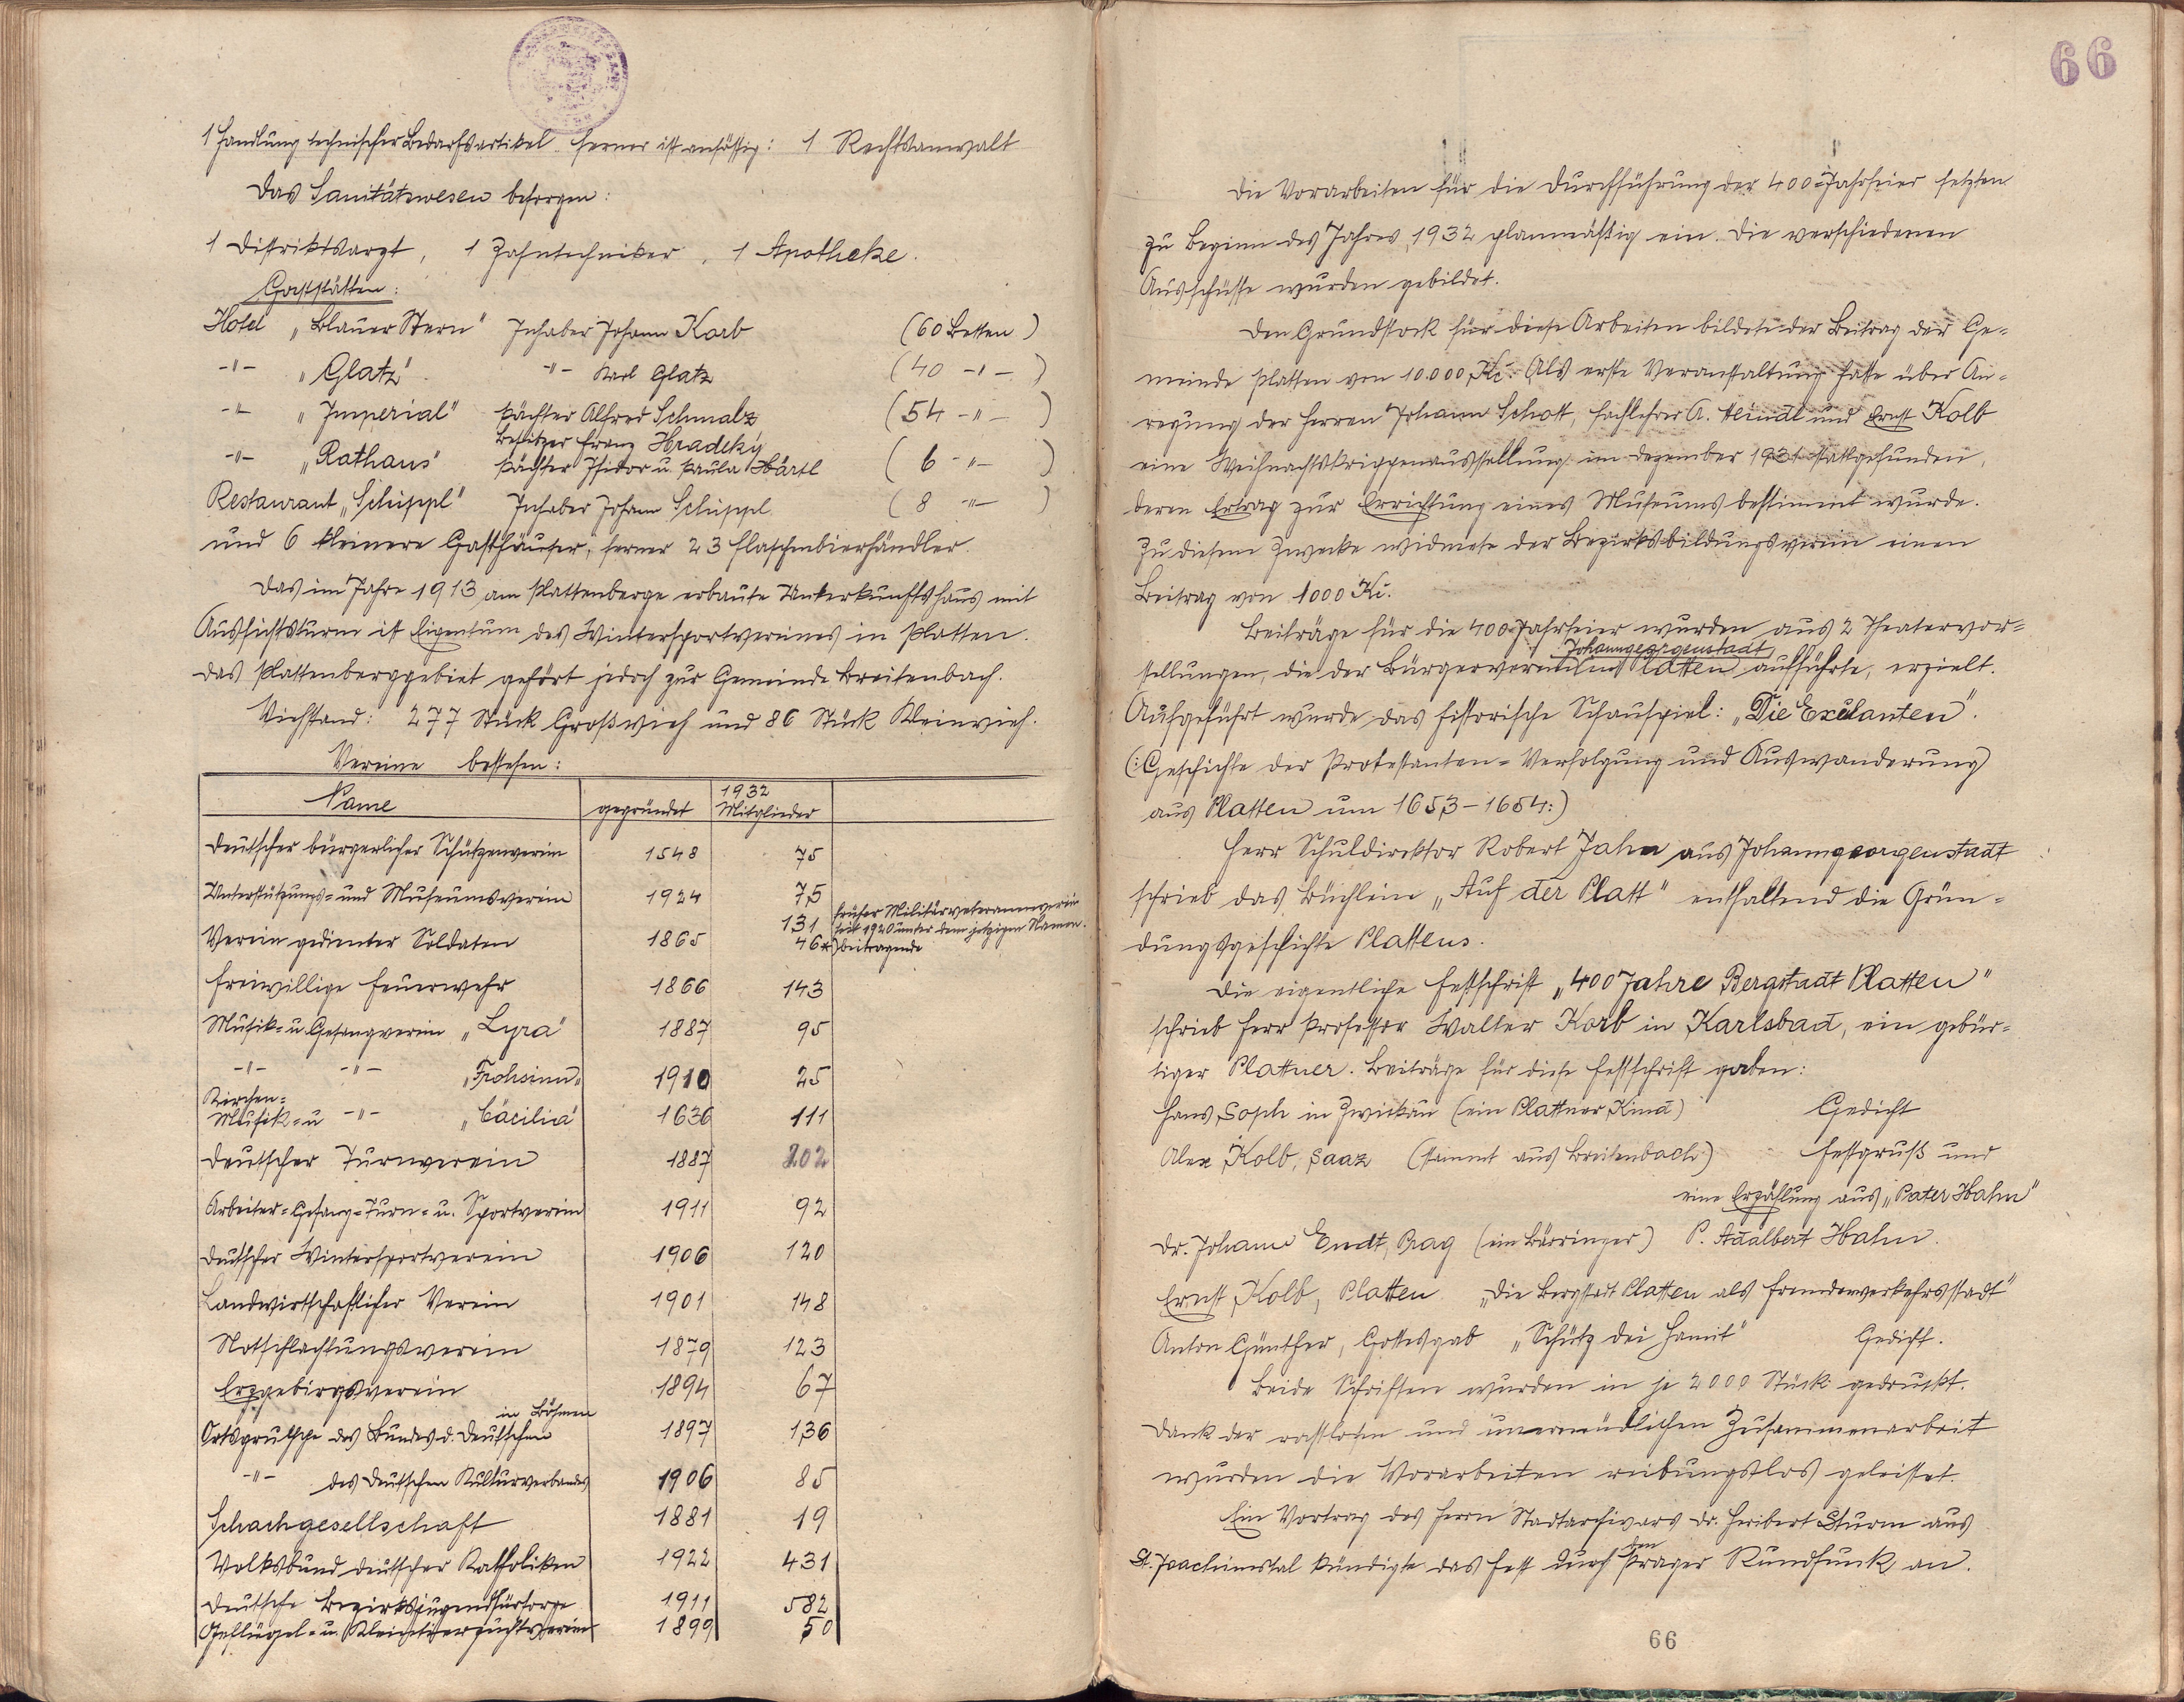 1 Handlung technischer Bedarfsartikel ferner ist ansässig: 1 Rechtsanwalt
Das Sanitätswesen besorgen:
1 Distriktsarzt, 1 Zahntechniker, 1 Apotheke.
Gaststätten:
Hotel „Blauer Stern" Inhaber Johann Korb (60 Betten)
-"- „Glatz" -"- Karl Glatz (40 -"-)
-"- „Imperial" Pächter Alfred Schmalz (54 -"-)
Besitzer Franz Hradeký
-"- „Rathaus" Pächter Isidor u. Paula Härtl (6 -"-)
Restaurant „Schippl" Inhaber Johann Schippl (8 -"-)
und 6 kleinere Gasthäuser, ferner 23 Flaschenbierhändler.
Das im Jahre 1913 am Plattenberge erbaute Unterkunftshaus mit
Aussichtsturm ist Eigentum des Wintersportvereines in Platten.
Das Plattenberggebiet gehört jedoch zur Gemeinde Breitenbach.
Viehstand: 277 Stück Großvieh und 86 Stück Kleinvieh.
Vereine bestehen:
Name gegründet 1932 Mitglieder
Deutscher bürgerlicher Schützenverein 1548 75
Unterstützungs- und Museumsverein 1924 75
Verein gedienter Soldaten 1865 131 früher Militärveteranenverein
seit 1920 unter dem jetzigen Namen.
46* beitragende
Freiwillige Feuerwehr 1866 143
Musik- u. Gesangverein „Lyra" 1887 95
-"- -"- „Frohsinn" 1910 25
Kirchen-
Musik- u -"- „Cäcilia" 1636 111
Deutscher Turnverein 1887 202
Arbeiter-Gesang-Turn- u. Sportverein 1911 92
Deutscher Wintersportverein 1906 120
Landwirtschaftlicher Verein 1901 148
Notschlachtungsverein 1879 123
Erzgebirgsverein 1894 67
in Böhmen
Ortsgruppe des Bundes d. Deutschen 1897 136
-"- des Deutschen Kulturverbandes 1906 85
Schachgesellschaft 1881 19
Volksbund deutscher Katholiken 1922 431
Deutsche Bezirksjugendfürsorge 1911 582
Geflügel- u. Kleintierzuchtverein 1899 50
66
Die Vorarbeiten für die Durchführung der 400-Jahrfeier setzten
zu Beginn des Jahres 1932 planmäßig ein. Die verschiedenen
Ausschüsse wurden gebildet.
Den Grundstock für diese Arbeiten bildete der Beitrag der Ge-
meinde Platten von 10.000 Kč. Als erste Veranstaltung hatte über An-
regung der Herren Johann Schott, Fachlehrer A. Heindl und Ernst Kolb
eine Weihnachtskrippenausstellung im Dezember 1931 stattgefunden,
deren Ertrag zur Errichtung eines Museums bestimmt wurde.
Zu diesem Zwecke widmete der Bezirksbildungsverein einen
Beitrag von 1000 Kč.
Beiträge für die 400-Jahrfeier wurden aus 2 Theatervor-
Johanngeorgenstadt
stellungen, die der Bürgerverein in Platten aufführte, erzielt.
Aufgeführt wurde das historische Schauspiel: „Die Exulanten".
(: Geschichte der Protestanten-Verfolgung und Auswanderung
aus Platten um 1653-1654:)
Herr Schuldirektor Robert Jahn aus Johanngeorgenstadt
schrieb das Büchlein „Auf der Platt" enthaltend die Grün-
dungsgeschichte Plattens.
Die eigentliche Festschrift „400 Jahre Bergstadt Platten"
schrieb Herr Professor Walter Korb in Karlsbad, ein gebür-
tiger Plattner. Beiträge für diese Festschrift gaben:
Hans Soph in Zwickau (ein Plattner Kind) Gedicht
Alex Kolb, Saaz (stammt aus Breitenbach) Festgruß und
eine Erzählung aus „Pater Hahn"
Dr. Johann Endt, Prag (ein Bärringer) P. Adalbert Hahn.
Ernst Kolb, Platten „Die Bergstadt Platten als Fremdenverkehrsstadt"
Anton Günther, Gottesgab „Schütz dei Hamit" Gedicht.
Beide Schriften wurden in je 2000 Stück gedruckt.
Dank der rastlosen und unermüdlichen Zusammenarbeit
wurden die Vorarbeiten reibungslos geleistet.
Ein Vortrag des Herrn Stadtarchivars Dr. Heribert Sturm aus
den
St. Joachimstal kündigte das Fest durch Prager Rundfunk an.
66